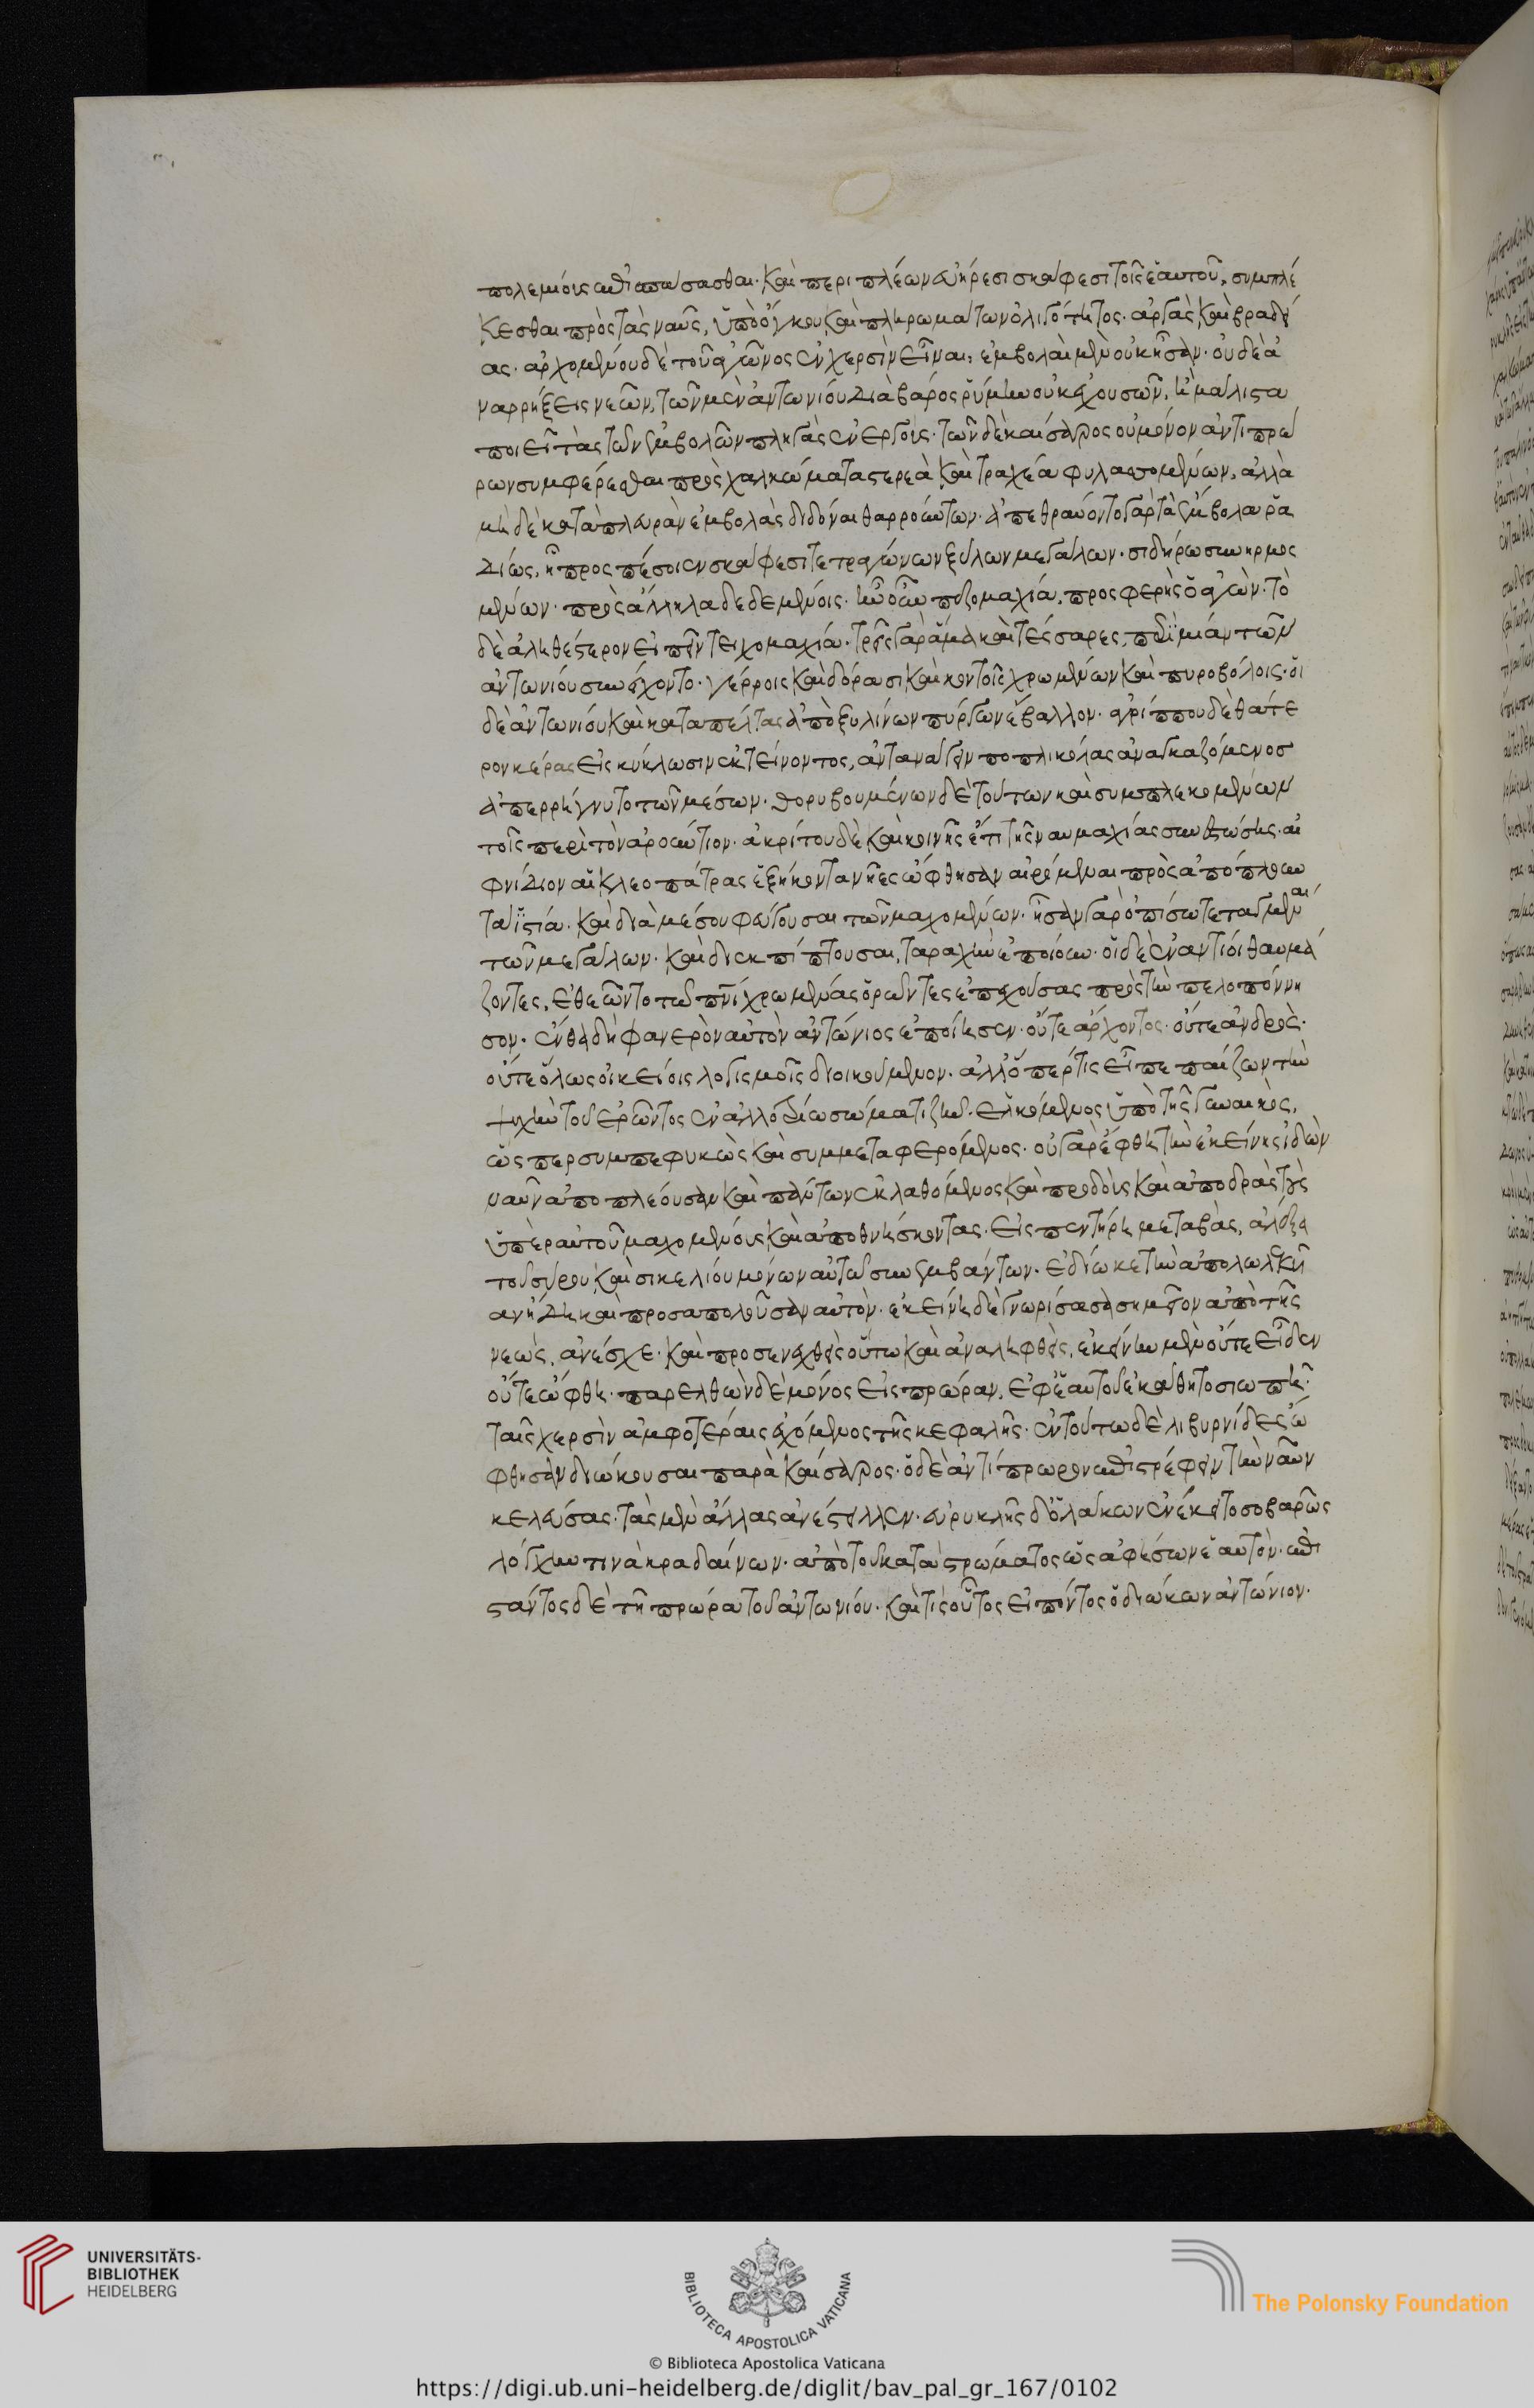 πολεμίοις ἐπισπάσασθαι· καὶ περιπλέων εὐήρεσι σκάφεσι τοῖς ἑαυτοῦ, συμπλέ
κεσθαι πρὸς τὰς ναῦς, ὑπὸ ὄγκου καὶ πληρωμάτων ὀλιγότητος· ἀργὰς καὶ βραδεί
ας· ἀρχομένου δὲ τοῦ ἀγῶνος ἐν χερσὶν εἶναι, ἐμβολαὶ μὲν οὐκ ἦσαν· οὐδὲ ἀ
ναρρήξεις νεῶν, τῶν μὲν ἀντωνίου διὰ βάρος ῥύμην οὐκ ἐχουσῶν, ἣ μάλιστα
ποιεῖ τὰς τῶν ἐμβολῶν πληγὰς ἐνεργούς· τῶν δὲ καίσαρος οὐ μόνον ἀντιπρώ
ρων συμφέρεσθαι πρὸς χαλκώματα στερεὰ καὶ τραχέα φυλασσομένων, ἀλλὰ
μὴ δὲ κατὰ πλευρὰν ἐμβολὰς διδόναι θαρρούντων· ἀπεθραύοντο γὰρ τὰ ἔμβολα ῥᾳ
δίως, ἧ προσπέσοιεν σκάφεσι τετραγώνων ξύλων μεγάλων· σιδήρω συνηρμοσ
μένων· πρὸς ἄλληλα δεδεμένοις· ἦν οὖν πεζομαχία, προσφερὴς ὁ ἀγών· τὸ
δὲ ἀληθέστερον εἰπεῖν τειχομαχία· τρεῖς γὰρ ἅμα καὶ τέσσαρες, περὶ μίαν τῶν
ἀντωνίου συνείχοντο· γέρροις καὶ δόρασι καὶ κοντοῖς χρωμένων καὶ πυροβόλοις· οἱ
δὲ ἀντωνίου καὶ καταπέλταις ἀπὸ ξυλίνων πύργων ἔβαλλον· ἀγρίππου δὲ θάτε
ρον κέρας εἰς κύκλωσιν ἐκτείνοντος, ἀντανάγειν ποπλικόλας ἀναγκαζόμενος
ἀπερρήγνυτο τῶν μέσων· θορυβουμένων δὲ τούτων καὶ συμπλεκομένων
τοῖς περὶ τὸν ἀρούντιον· ἀκρίτου δὲ καὶ κοινῆς ἔτι τῆς ναυμαχίας συνεστώσης· αἰ
φνίδιον αἱ κλεοπάτρας ἑξήκοντα νῆες ὤφθησαν αἰρόμεναι πρὸς ἀπόπλουν
τὰ ἱστία· καὶ διὰ μέσου φεύγουσαι τῶν μαχομένων· ἦσαν γὰρ ὀπίσω τεταγμέναι
τῶν μεγάλων· καὶ διεκπίπτουσαι, ταραχὴν ἐποίουν· οἱ δὲ ἐναντίοι θαυμά
ζοντες, ἐθεῶντο τῶ πνεύματι χρωμένας ὁρῶντες ἐπεχούσας πρὸς τὴν πελοπόννη
σον· ἔνθα δὴ φανερὸν αὑτὸν ἀντώνιος ἐποίησεν· οὔτε ἄρχοντος· οὔτε ἀνδρὸς·
οὔτε ὅλως οἰκείοις λογισμοῖς διοικούμενον· ἀλλ' ὅπερ τις εἶπε παίζων τὴν
ψυχὴν τοῦ ἐρῶντος ἐν ἀλλοτρίω σώματι ζῆν· ἑλκόμενος ὑπὸ τῆς γυναικὸς,
ὥσπερ συμπεφυκὼς καὶ συμμεταφερόμενος· οὐ γὰρ ἔφθη τὴν ἐκείνης ἰδὼν
ναῦν ἀποπλέουσαν καὶ πάντων ἐκλαθόμενος καὶ προδοὺς καὶ ἀποδρὰς τοὺς
ὑπὲρ αὐτοῦ μαχομένους καὶ ἀποθνήσκοντας· εἰς πεντήρη μεταβὰς, ἀλεξᾶ
τοῦ σύρου καὶ σικελίου μόνων αὐτῶ συνεμβάντων· ἐδίωκε τὴν ἀπολωλεκυῖ
αν ἤδη καὶ προσαπολοῦσαν αὐτόν· ἐκείνη δὲ γνωρίσασα σημεῖον ἀπὸ τῆς
νεὼς, ἀνέσχε· καὶ προσενεχθεὶς οὕτω καὶ ἀναληφθεὶς, ἐκείνην μὲν οὔτε εἶδεν
οὔτε ὤφθη· παρελθὼν δὲ μόνος εἰς πρώραν, ἐφ' ἑαυτοῦ ἐκάθητο σιωπῆ·
ταῖς χερσὶν ἀμφοτέραις ἐχόμενος τῆς κεφαλῆς· ἐν τούτω δὲ λιβυρνίδες ὤ
φθησαν διώκουσαι παρὰ καίσαρος· ὁ δὲ ἀντίπρωρον ἐπιστρέφειν τὴν ναῦν
κελεύσας· τὰς μὲν ἄλλας ἀνέστειλεν· εὐρυκλῆς δ' ὁ λάκων ἐνέκειτο σοβαρῶς
λόγχην τινὰ κραδαίνων· ἀπὸ τοῦ καταστρώματος ὡς ἀφήσων ἐπ' αὐτόν· ἐπι
στάντος δὲ τῆ πρώρα τοῦ ἀντωνίου· καὶ τίς οὗτος εἰπόντος ὁ διώκων ἀντώνιον·
UNIVERSITÄTS-
BIBLIOTHEK
HEIDELBERG
BIBLIOTECA APOSTOLICA VATICANA
The Polonsky Foundation
© Biblioteca Apostolica Vaticana
https://digi.ub.uni-heidelberg.de/diglit/bav_pal_gr_167/0102